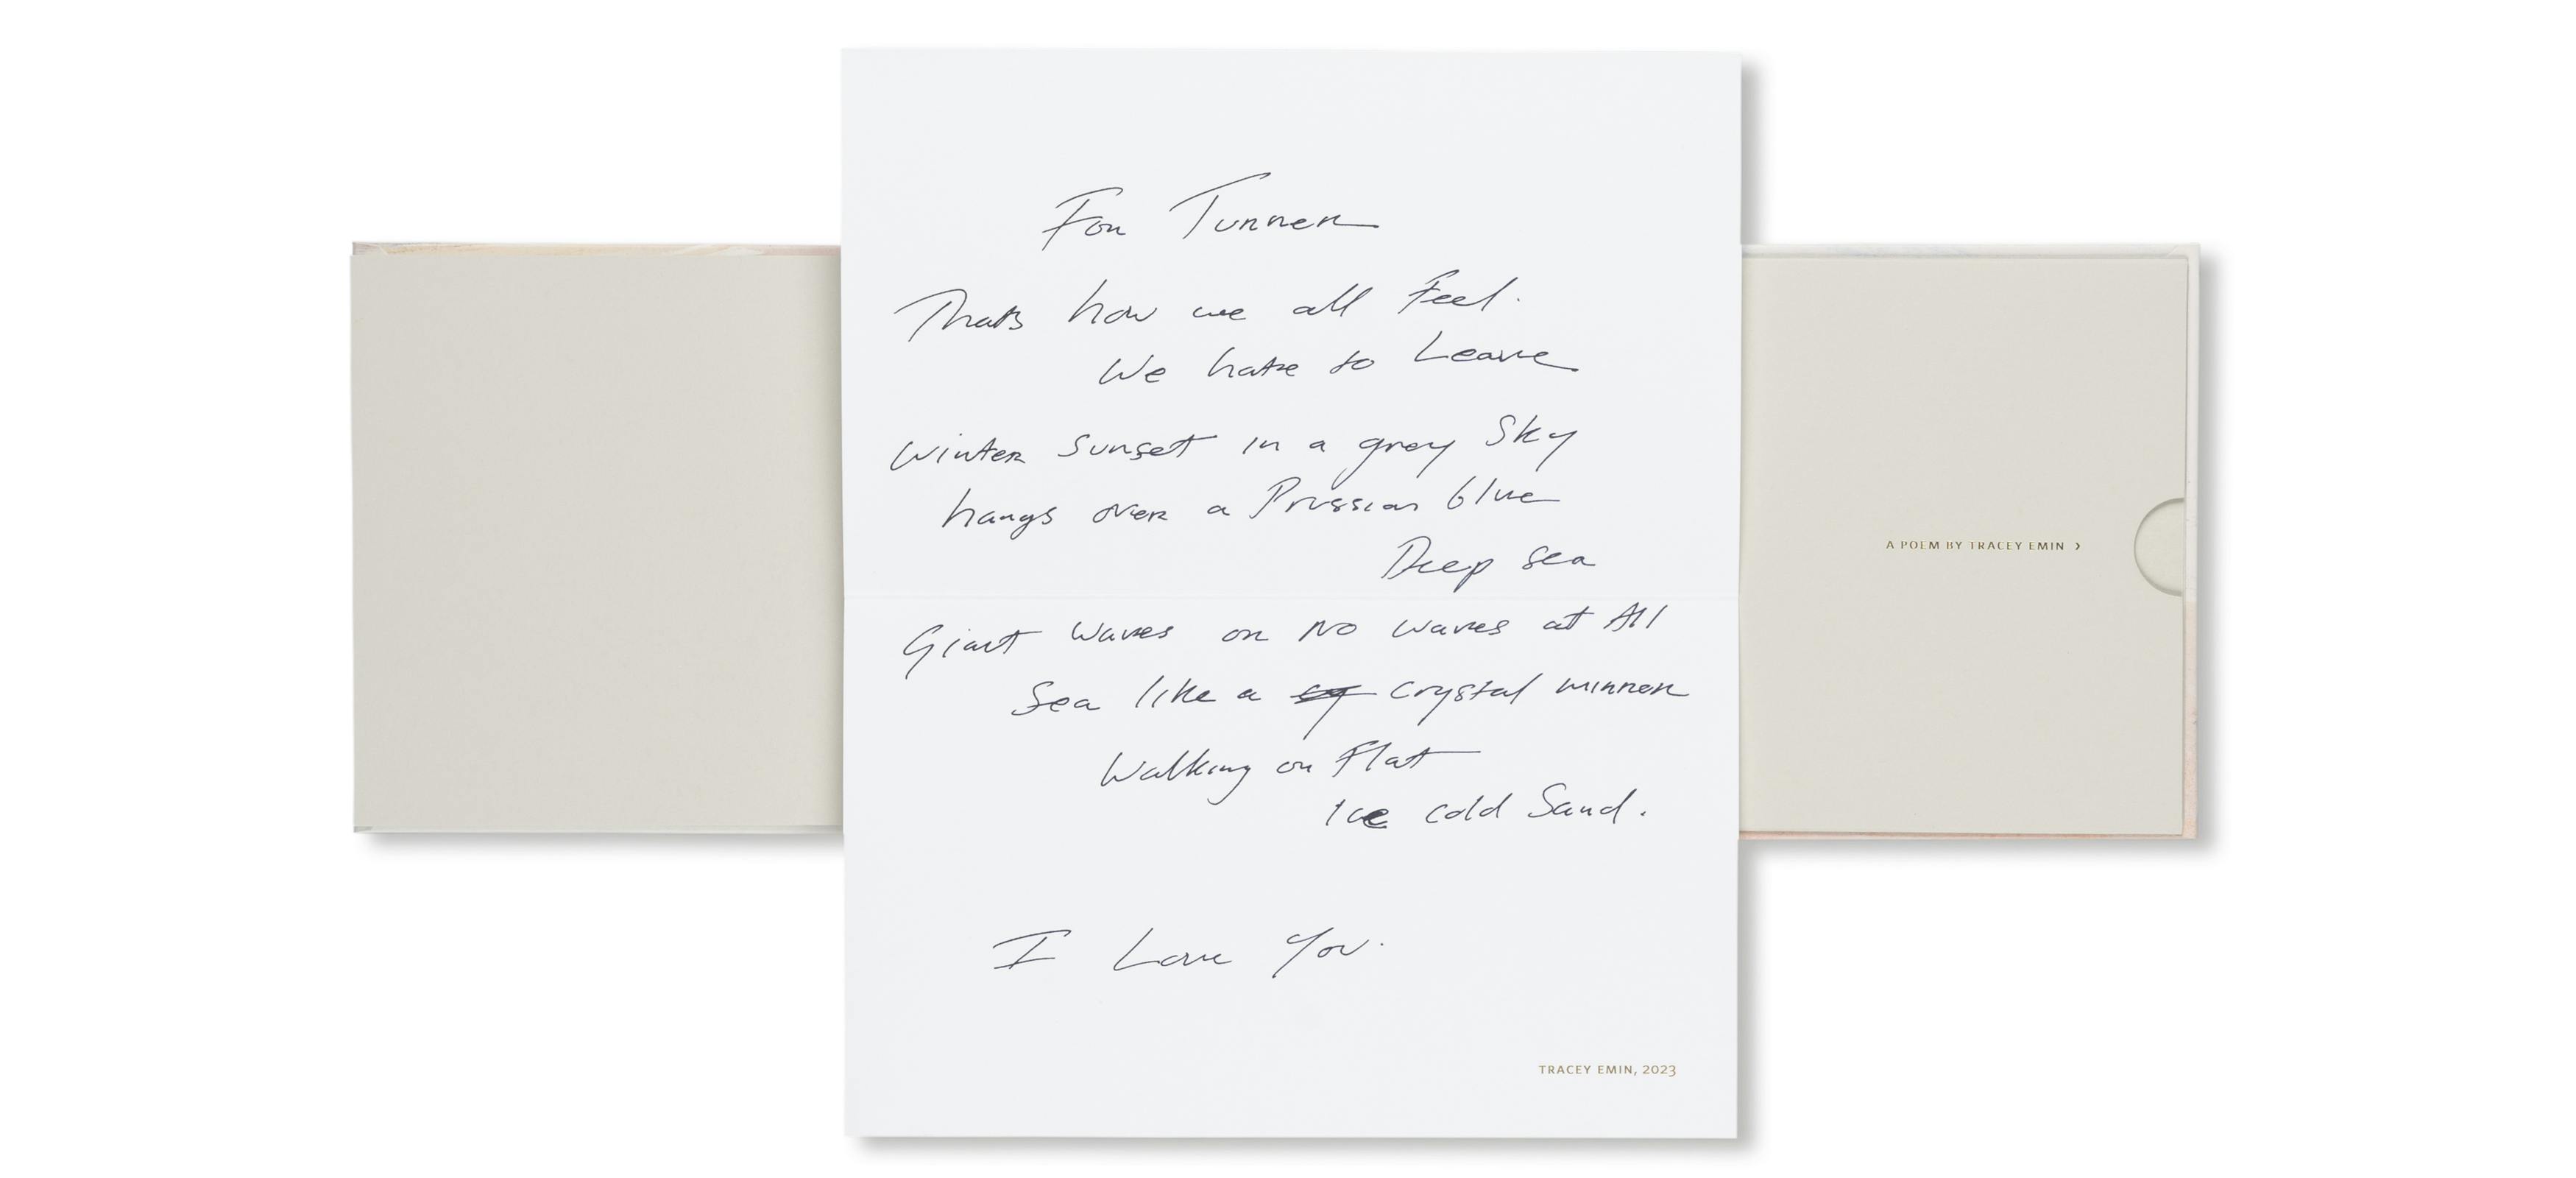 For Turner
Thats how we all Feel.
We hate to Leave
Winter Sunset in a grey Sky
hangs over a Prussian blue
Deep sea
Giant Waves or No waves at All
Sea like a crystal mirror
Walking on Flat
Ice cold Sand.
I Love You.
TRACEY EMIN, 2023
A POEM BY TRACEY EMIN >